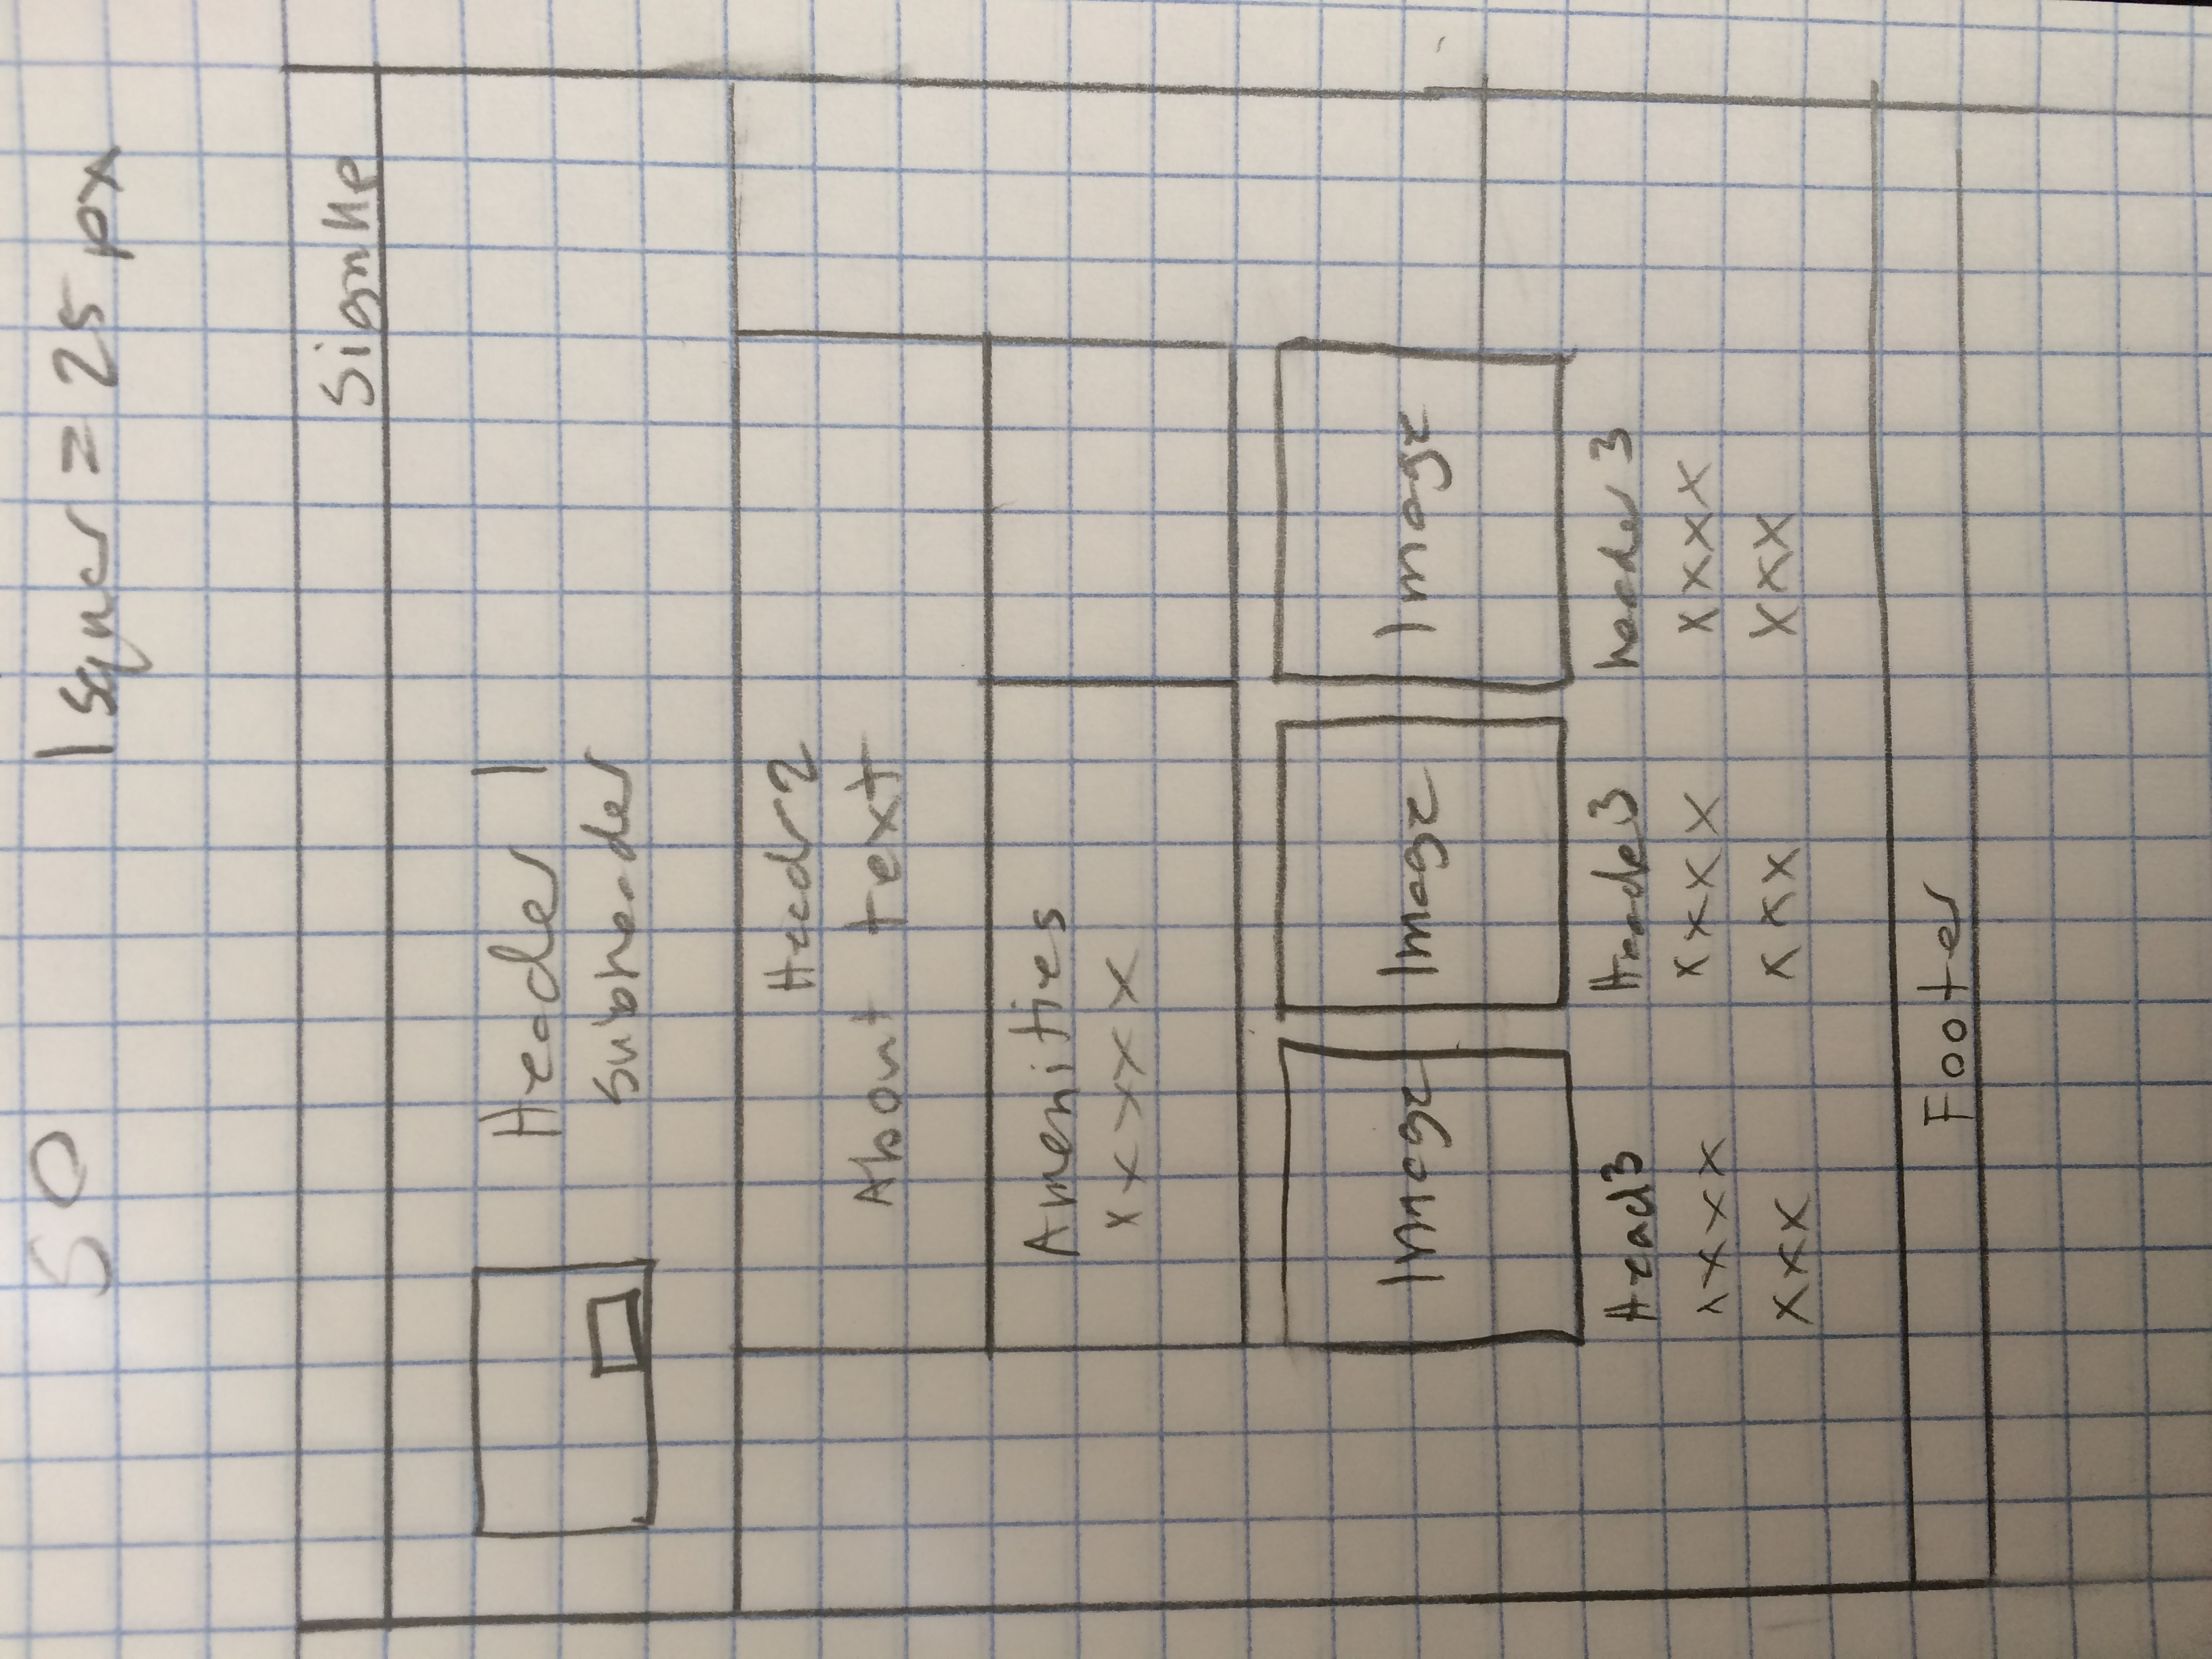 50 1 squar = 25 px
Header 1
subheader
Head 2
About text
Amenities
x x x x x
Image Image Image
Head3 Heade3 header 3
x x x x x x x x x x x x
x x x x x x x x x
Footer